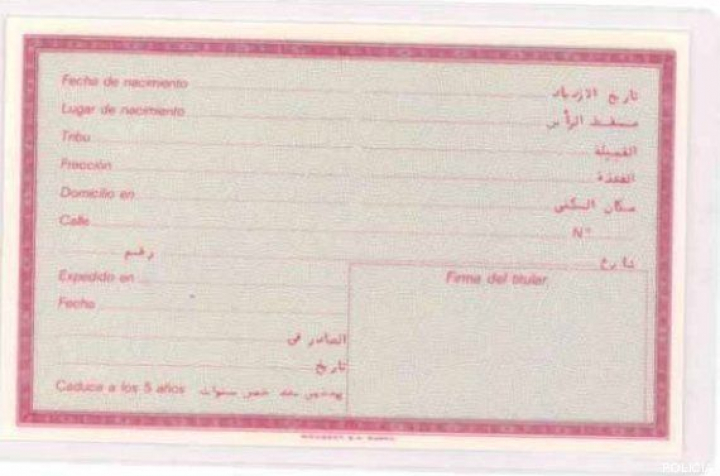 Fecha de nacimiento تاريخ الازدياد
Lugar de nacimiento مسقط الرأس
Tribu القبيلة
Fracción الفخذة
Domicilio en مكان السكنى
Calle Nº
رقم شارع
Expedido en Firma del titular,
Fecha
الصادر في
تاريخ
Caduca a los 5 años بعد خمس سنوات
POLICIA